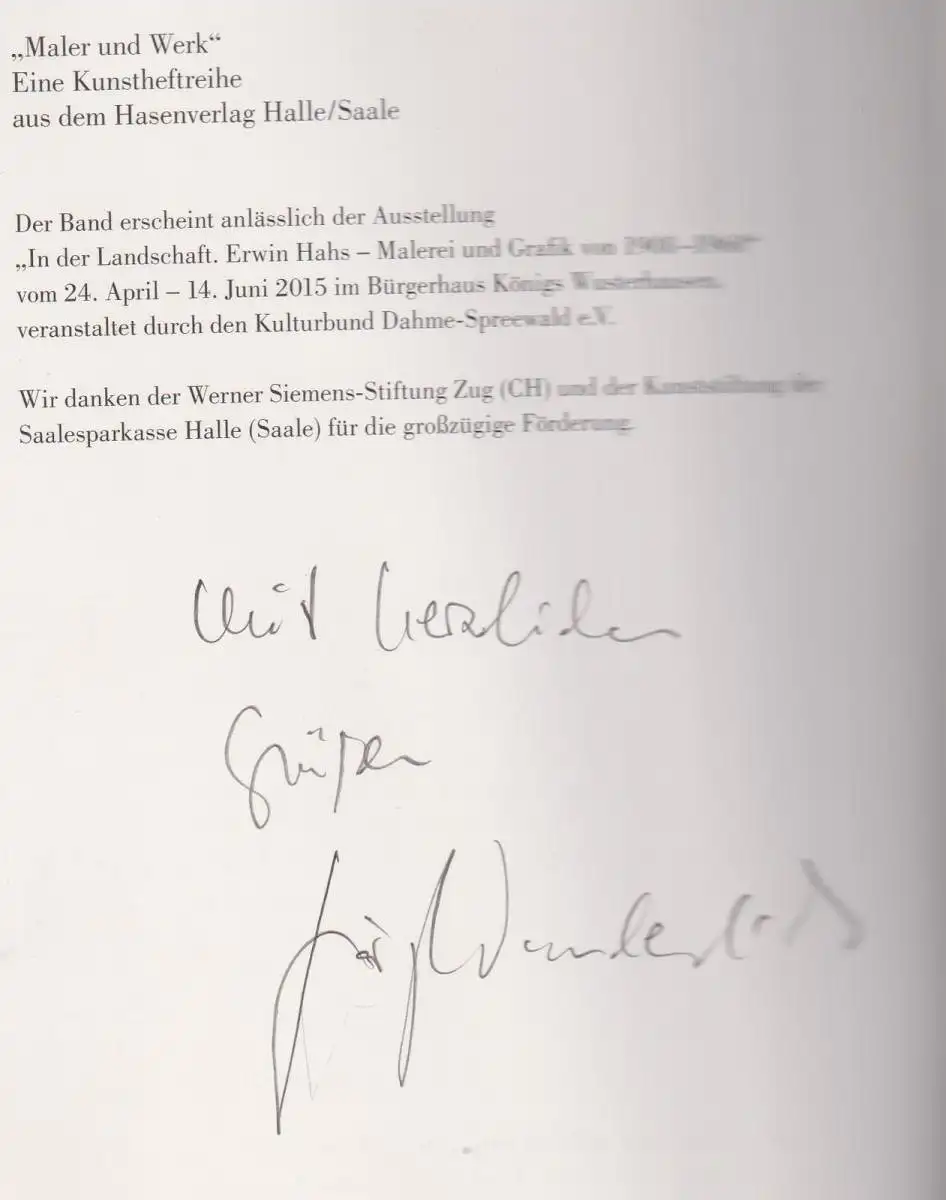 „Maler und Werk“
Eine Kunstheftreihe
aus dem Hasenverlag Halle/Saale
Der Band erscheint anlässlich der Ausstellung
„In der Landschaft. Erwin Hahs – Malerei und Grafik von
vom 24. April – 14. Juni 2015 im Bürgerhaus Königs Wusterhausen,
veranstaltet durch den Kulturbund Dahme-Spreewald e.V.
Wir danken der Werner Siemens-Stiftung Zug (CH) und der Kunststiftung der
Saalesparkasse Halle (Saale) für die großzügige Förderung.
Mit herzlichen
Grüßen